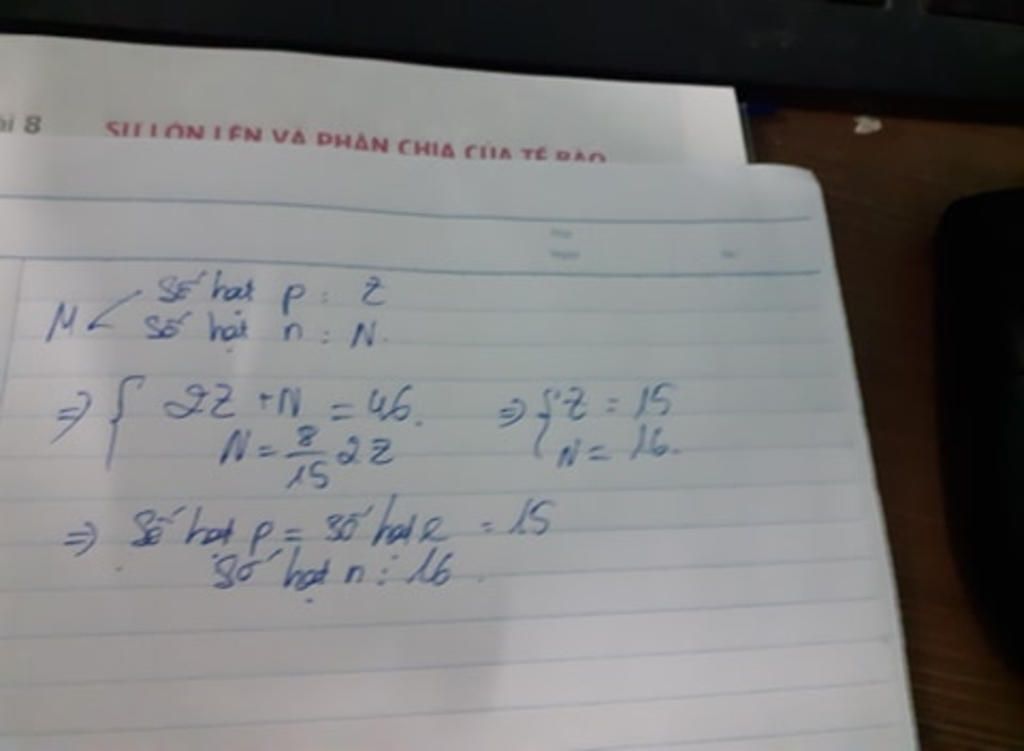 ài 8 SỰ LỚN LÊN VÀ PHÂN CHIA CỦA TẾ BÀO
M < Số hạt p : Z
Số hạt n : N.
=> { 2Z + N = 46.
N = 8/15 2Z
=> { Z = 15
N = 16.
=> Số hạt p = số hạt e = 15
Số hạt n : 16.